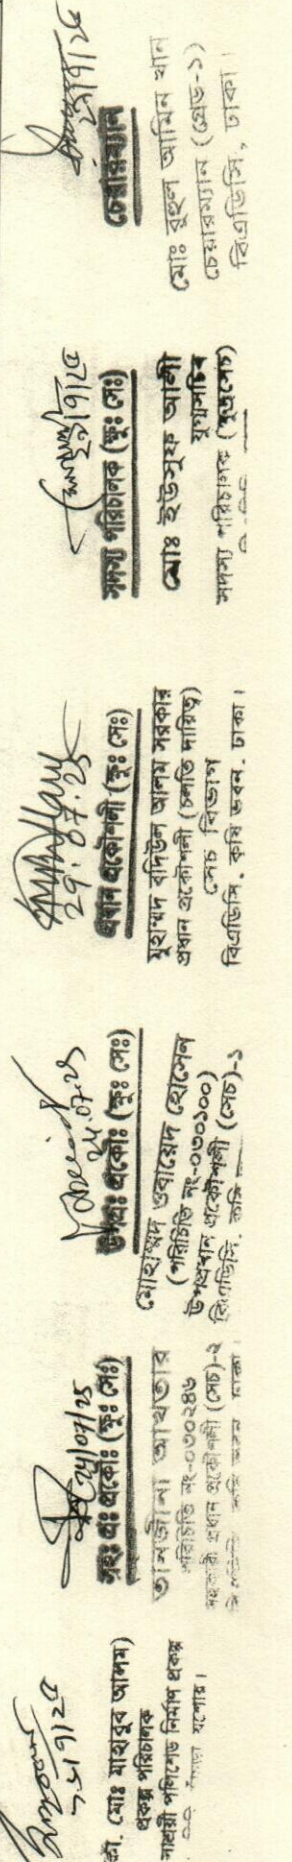 ২৮/৭/২৫
কৌ. মোঃ মাহাবুব আলম)
প্রকল্প পরিচালক
সাশ্রয়ী পলিশেড নির্মাণ প্রকল্প
যশোর।
২৮/০৭/২৫
সহঃ প্রঃ প্রকৌঃ (ক্ষুঃ সেঃ)
তানজীনা আখতার
পরিচিতি নং-০৩০২৪৬
সহকারী প্রধান প্রকৌশলী (সেচ)-২
28.07.25
উপপ্রঃ প্রকৌঃ (ক্ষুঃ সেঃ)
মোহাম্মদ ওবায়েদ হোসেন
(পরিচিতি নং-০৩০১০০)
উপপ্রধান প্রকৌশলী (সেচ)-১
বিএডিসি, কৃষি
29.07.25
প্রধান প্রকৌশলী (ক্ষুঃ সেঃ)
মুহাম্মদ বদিউল আলম সরকার
প্রধান প্রকৌশলী (চলতি দায়িত্ব)
সেচ বিভাগ
বিএডিসি, কৃষি ভবন, ঢাকা।
২৯/৭/২৫
সদস্য পরিচালক (ক্ষুঃ সেঃ)
মোঃ ইউসুফ আলী
যুগ্মসচিব
সদস্য পরিচালক (ক্ষুদ্রসেচ)
২৯/৭/২৫
চেয়ারম্যান
মোঃ রুহুল আমিন খান
চেয়ারম্যান (গ্রেড-১)
বিএডিসি, ঢাকা।